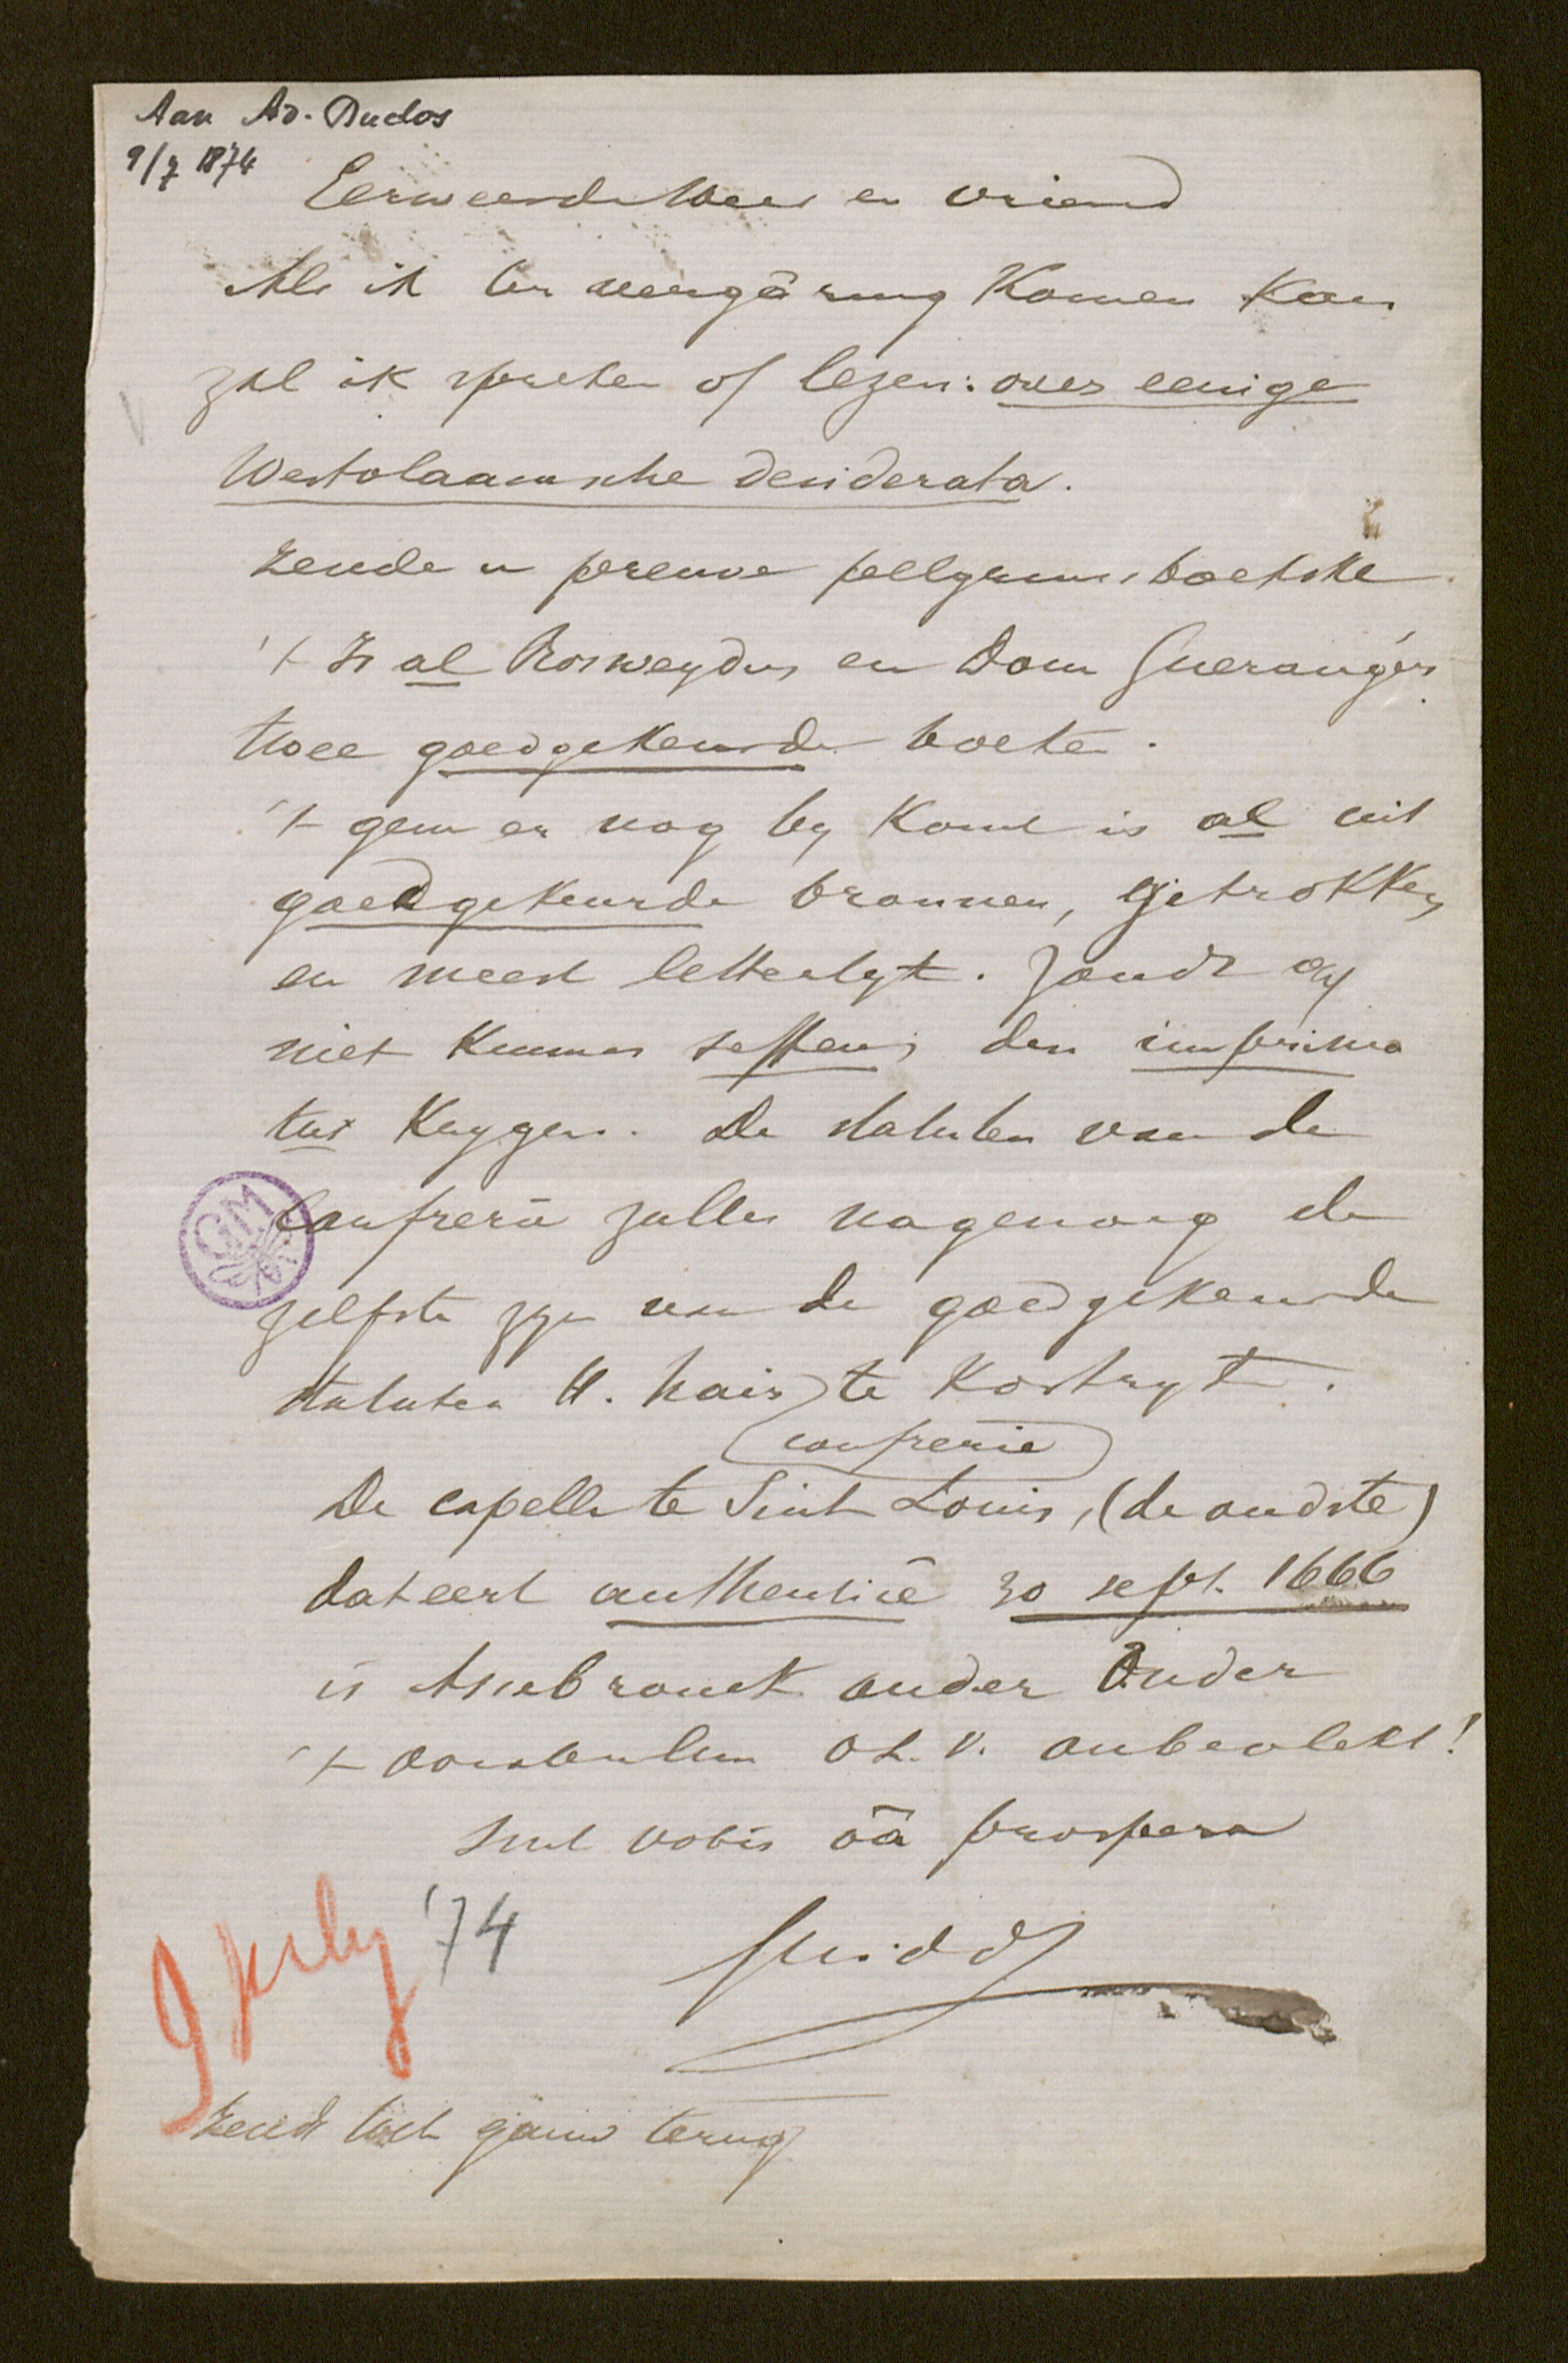 Aan Ad. Duclos
9/7 1874
Eerweerde Heer en vriend
Als ik ter vergāring komen kan
zal ik spreken of lezen: over eenige
Westvlaamsche desiderata.
Zende u preuve pelgrims boekske
't Is al Rosweydus en Dom Gueranger's
twee goedgekeurde boeken.
't geen er nog by komt is al uit
goedgekeurde bronnen, getrokken
en meest letterlyk. Zoudt gy
niet kunnen seffens den imprima
tur krygen. De statuten van de
Confrerie zullen nagenoeg de
zelfste zyn van de goedgekeurde
statuten H. Hair te Kortryk.
confrerie
De capelle te Sint Louis, (de oudste)
dateert authentice 30 sept. 1666
is Assebrouck ouder? Onder
't O.L.V. onbevlekt!
Sint vobis ōā prospera
Guido
9 July '74
Zendt toch gauw terug
GM